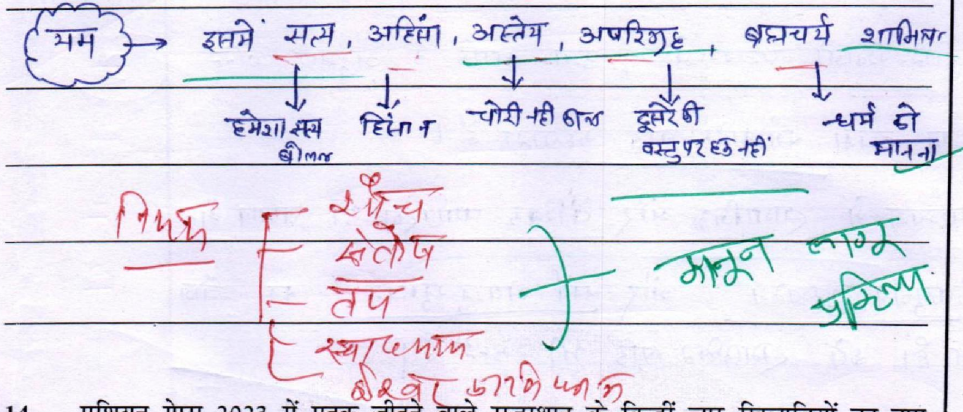 यम → इसमें सत्य, अहिंसा, अस्तेय, अपरिग्रह, ब्रह्मचर्य शामिल
हमेशा सत्य बोलना हिंसा न चोरी नही करना दूसरे की वस्तु पर हक नही धर्म को मानना
नियम
शौच
संतोष
तप
स्वाध्याय
ईश्वर
लागू
14. एशियन गेम्स 2023 में पदक जीतने वाले